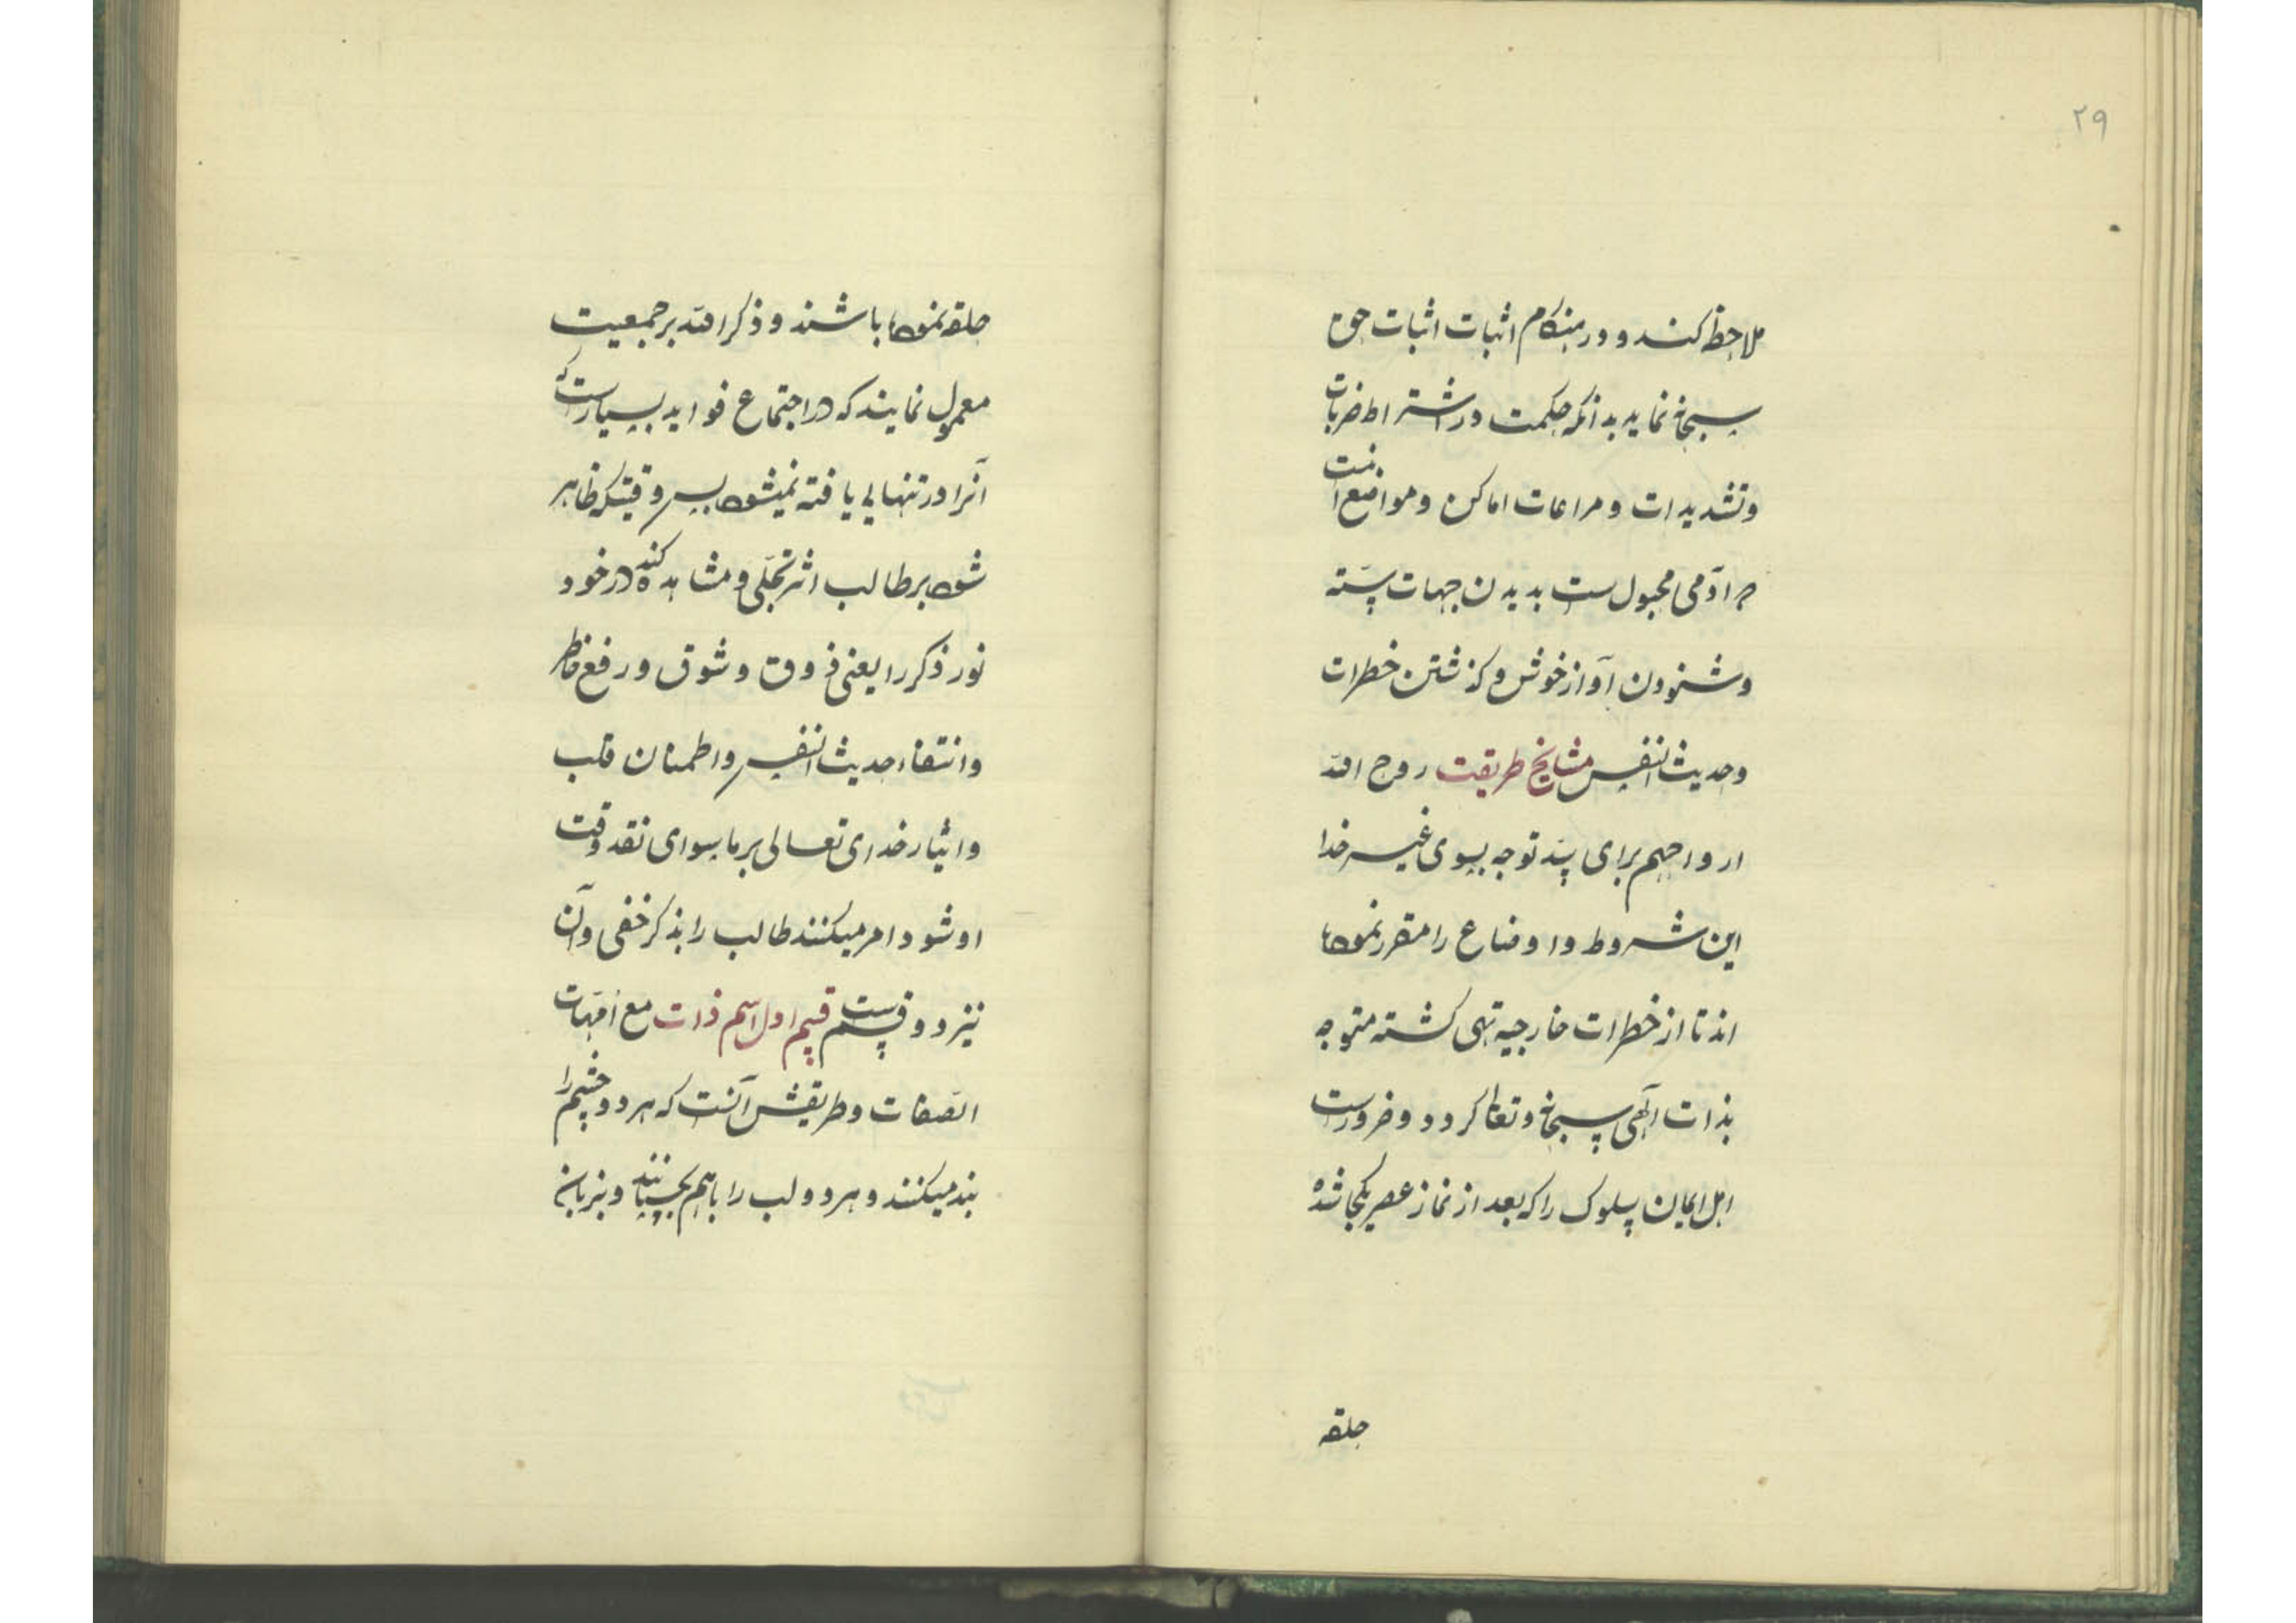 ۲۹
ملاحظه کند و در هنکام اثبات اثبات حق
سبحانه نماید بدانکه حکمت در اشتراط ضربات
وتشدیدات و مراعات اماکن ومواضع آنست
که آدمی مجبول ست بدیدن جهات سته
وشنودن آواز خوش و کذشتن خطرات
وحدیث النفس مشایخ طریقت روح الله
ارواحهم برای سد توجه بسوی غیر خدا
این شروط و اوضاع را مقرر نموده
اند تا از خطرات خارجیه تهی کشته متوجه
بذات آلهی سبحانه وتعالی کردد و ضرورست
اهل ایمان سلوک را که بعد از نماز عصر یکجا شده
حلقه
حلقه نموده باشند و ذکر الله بر جمعیت
معمول نمایند که در اجتماع فواید بسیارست که
آنرا در تنهایی یافته نمیشود پس وقتیکه ظاهر
شود بر طالب اثر تجلی و مشاهده کند در خود
نور ذکر را یعنی ذوق و شوق و رفع خاطر
وانتفاء حدیث النفس واطمنان قلب
وایثار خدای تعالی بر ماسوای نقد وقت
او شود امر میکنند طالب را بذکر خفی وآن
نیز دو قسم ست قسم اول اسم ذات مع امهات
الصفات وطریقش آنست که هر دو چشم را
بند میکنند و هر دو لب را باهم بچسپانند و بزبان